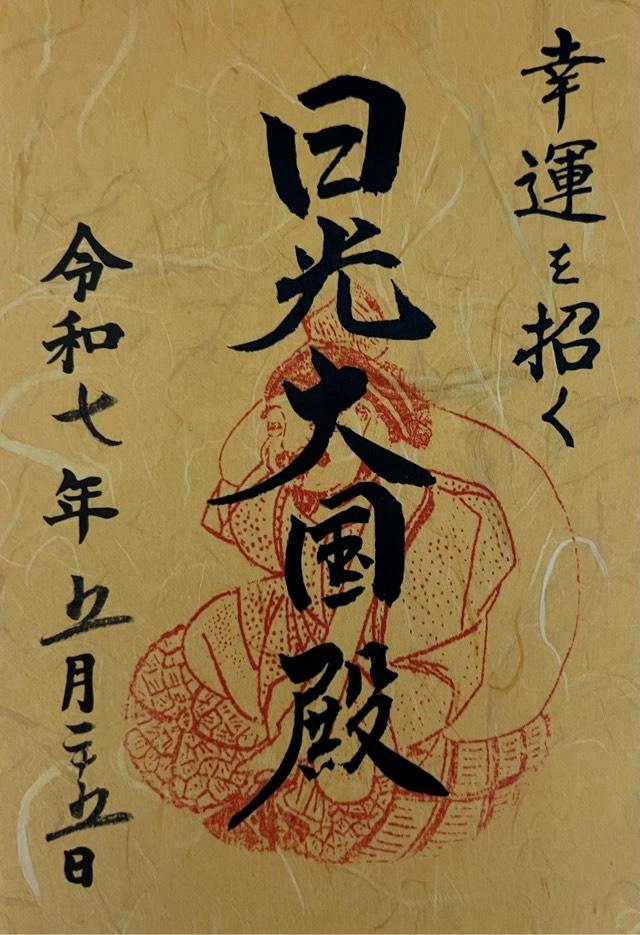 幸運を招く
日光大国殿
令和七年五月二十五日